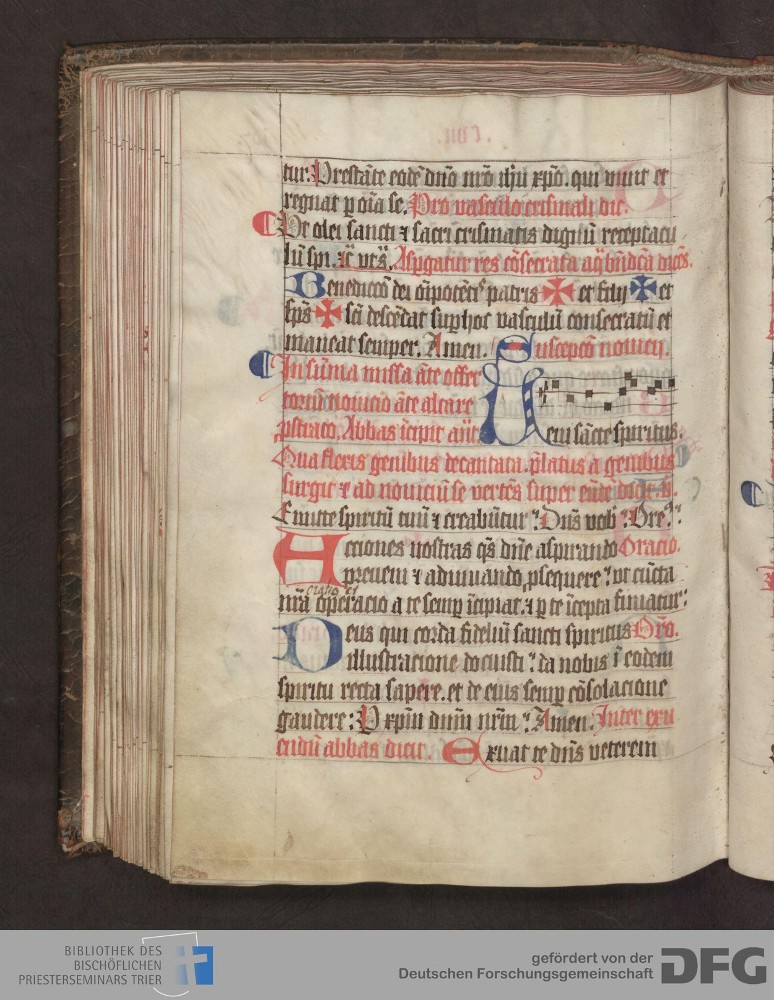 tur. Prestāte eodē dn̄o nr̄o ih̄u xp̄o. qui viuit et
regnat ꝑ oīa se. Pro vasculo crismali dic.
Vt olei sancti ⁊ sacri crismatis dignū receptacu
lū
Benediccō dei oīpotētis patris ✠ et filij ✠ et
sp̄s ✠ sc̄i descēdat suꝑ hoc vasculū consecratū et
maneat semper. Amen. Suscepcō nouicij.
In sūma missa āte offer
toriū nouicio āte altāre
ꝓstrato. Abbas īcipit ant̄
Veni sācte spiritus.
Qua flexis genibus decantata. p̄latus a genibus
surgit ⁊ ad nouiciū se vertēs super eūdē dicit. v̄.
Emitte spiritū tuū ⁊ creabūtur. Dn̄s vob. Ore.
Acciones nostras q̄s dn̄e aspirando Oracio.
preueni ⁊ adiuuando ꝓsequere: vt cūcta
oratio et
nr̄a operacio a te semꝑ īcipiat. ⁊ ꝑ te īcepta finiatur:
Deus qui corda fideliū sancti spiritus Oro.
illustracione docuisti: da nobis ī eodem
spiritu recta sapere. et de eius semꝑ cōsolacione
gaudere: P xp̄m dnm̄ nrm̄. Amen. Inter exu
endū abbas dicit. Exuat te dn̄s veterem
BIBLIOTHEK DES
BISCHÖFLICHEN
PRIESTERSEMINARS TRIER
gefördert von der
Deutschen Forschungsgemeinschaft
DFG